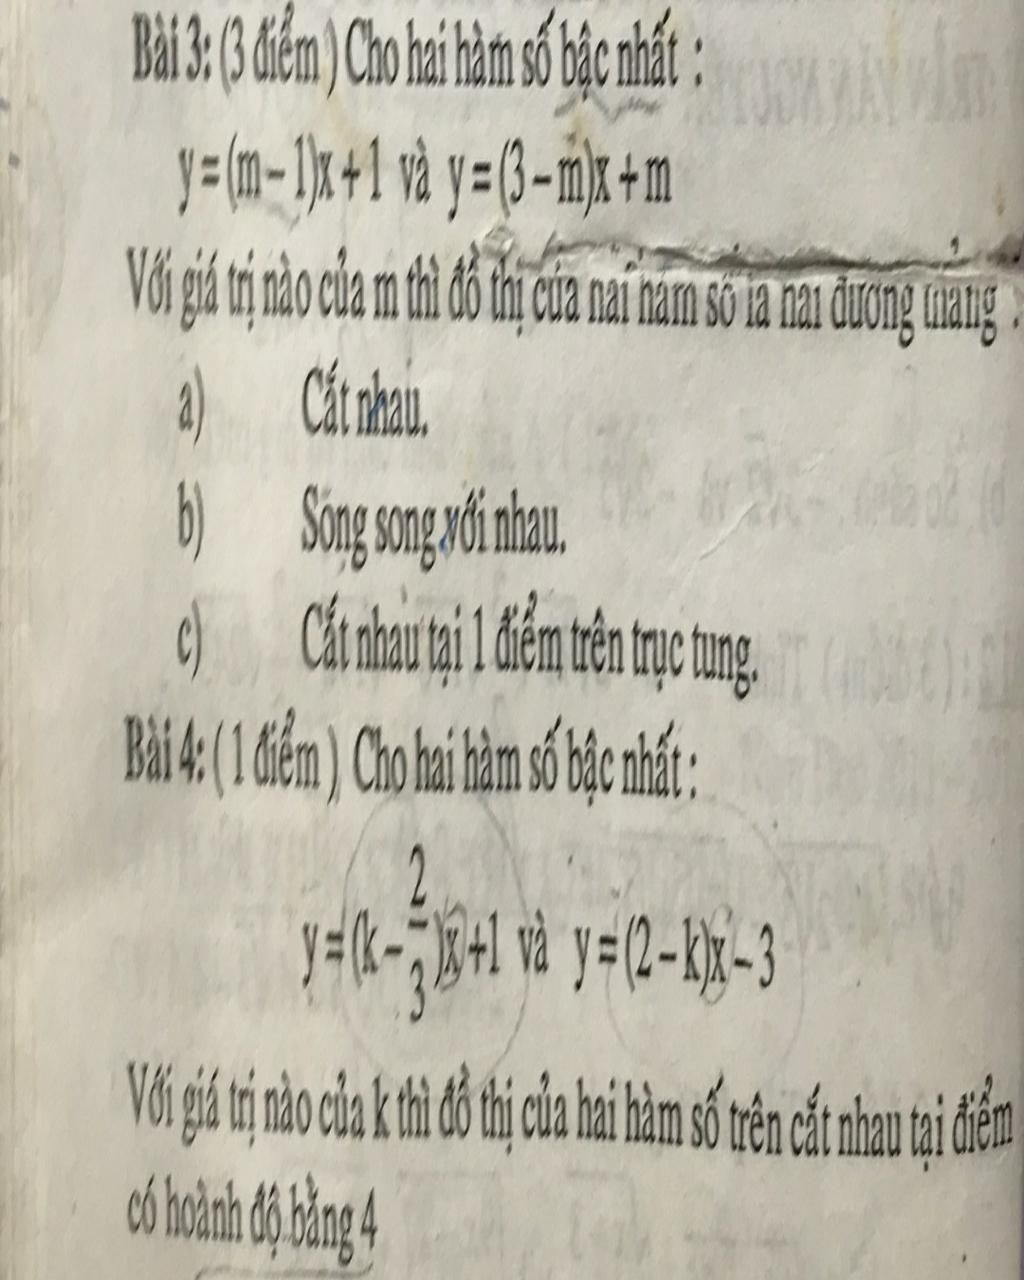 Bài 3: (3 điểm ) Cho hai hàm số bậc nhất :
y = (m – 1)x + 1 và y = (3 – m)x + m
Với giá trị nào của m thì đồ thị của hai hàm số là hai đường thẳng :
a) Cắt nhau.
b) Song song với nhau.
c) Cắt nhau tại 1 điểm trên trục tung.
Bài 4: ( 1 điểm ) Cho hai hàm số bậc nhất :
y = (k – 2/3)x + 1 và y = (2 – k)x – 3
Với giá trị nào của k thì đồ thị của hai hàm số trên cắt nhau tại điểm
có hoành độ bằng 4